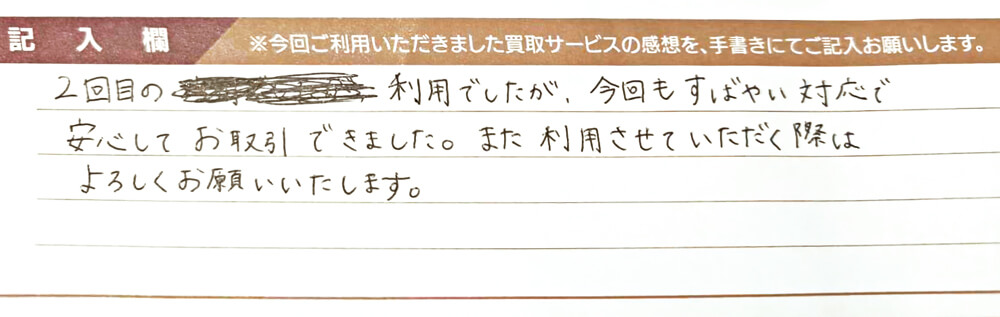 記入欄 ※今回ご利用いただきました買取サービスの感想を、手書きにてご記入お願いします。
2回目の 利用でしたが、今回もすばやい対応で
安心してお取引できました。また利用させていただく際は
よろしくお願いいたします。